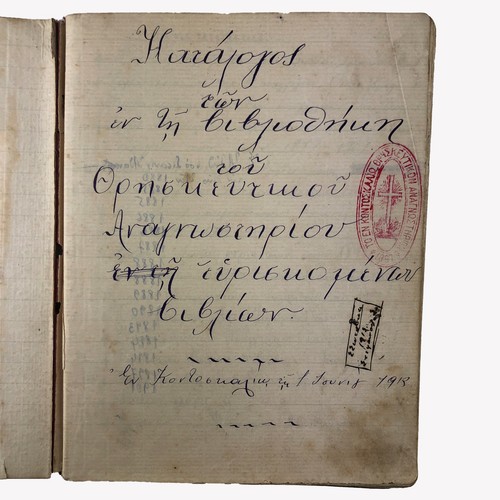 Κατάλογος
τῶν
ἐν τῇ βιβλιοθήκῃ
τοῦ
Θρησκευτικοῦ
Ἀναγνωστηρίου
ἐν τῇ εὑρισκομένων
βιβλίων.
Ἐν Κοντοσκαλίῳ τῇ 1 Ἰουνίου 1912
ΤΟ ΕΝ ΚΟΝΤΟΣΚΑΛΙΩ ΘΡΗΣΚΕΥΤΙΚΟΝ ΑΝΑΓΝΩΣΤΗΡΙΟΝ